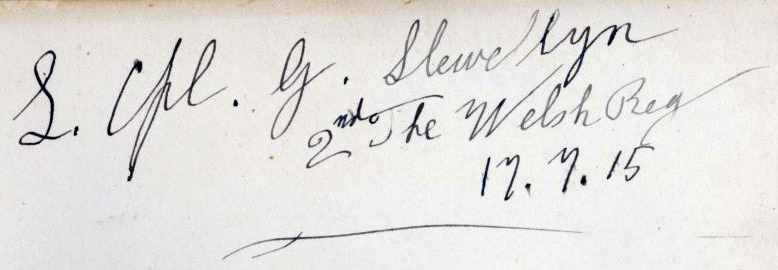 L. Cpl. G. Llewellyn
2nd. The Welsh Reg
17. 7. 15